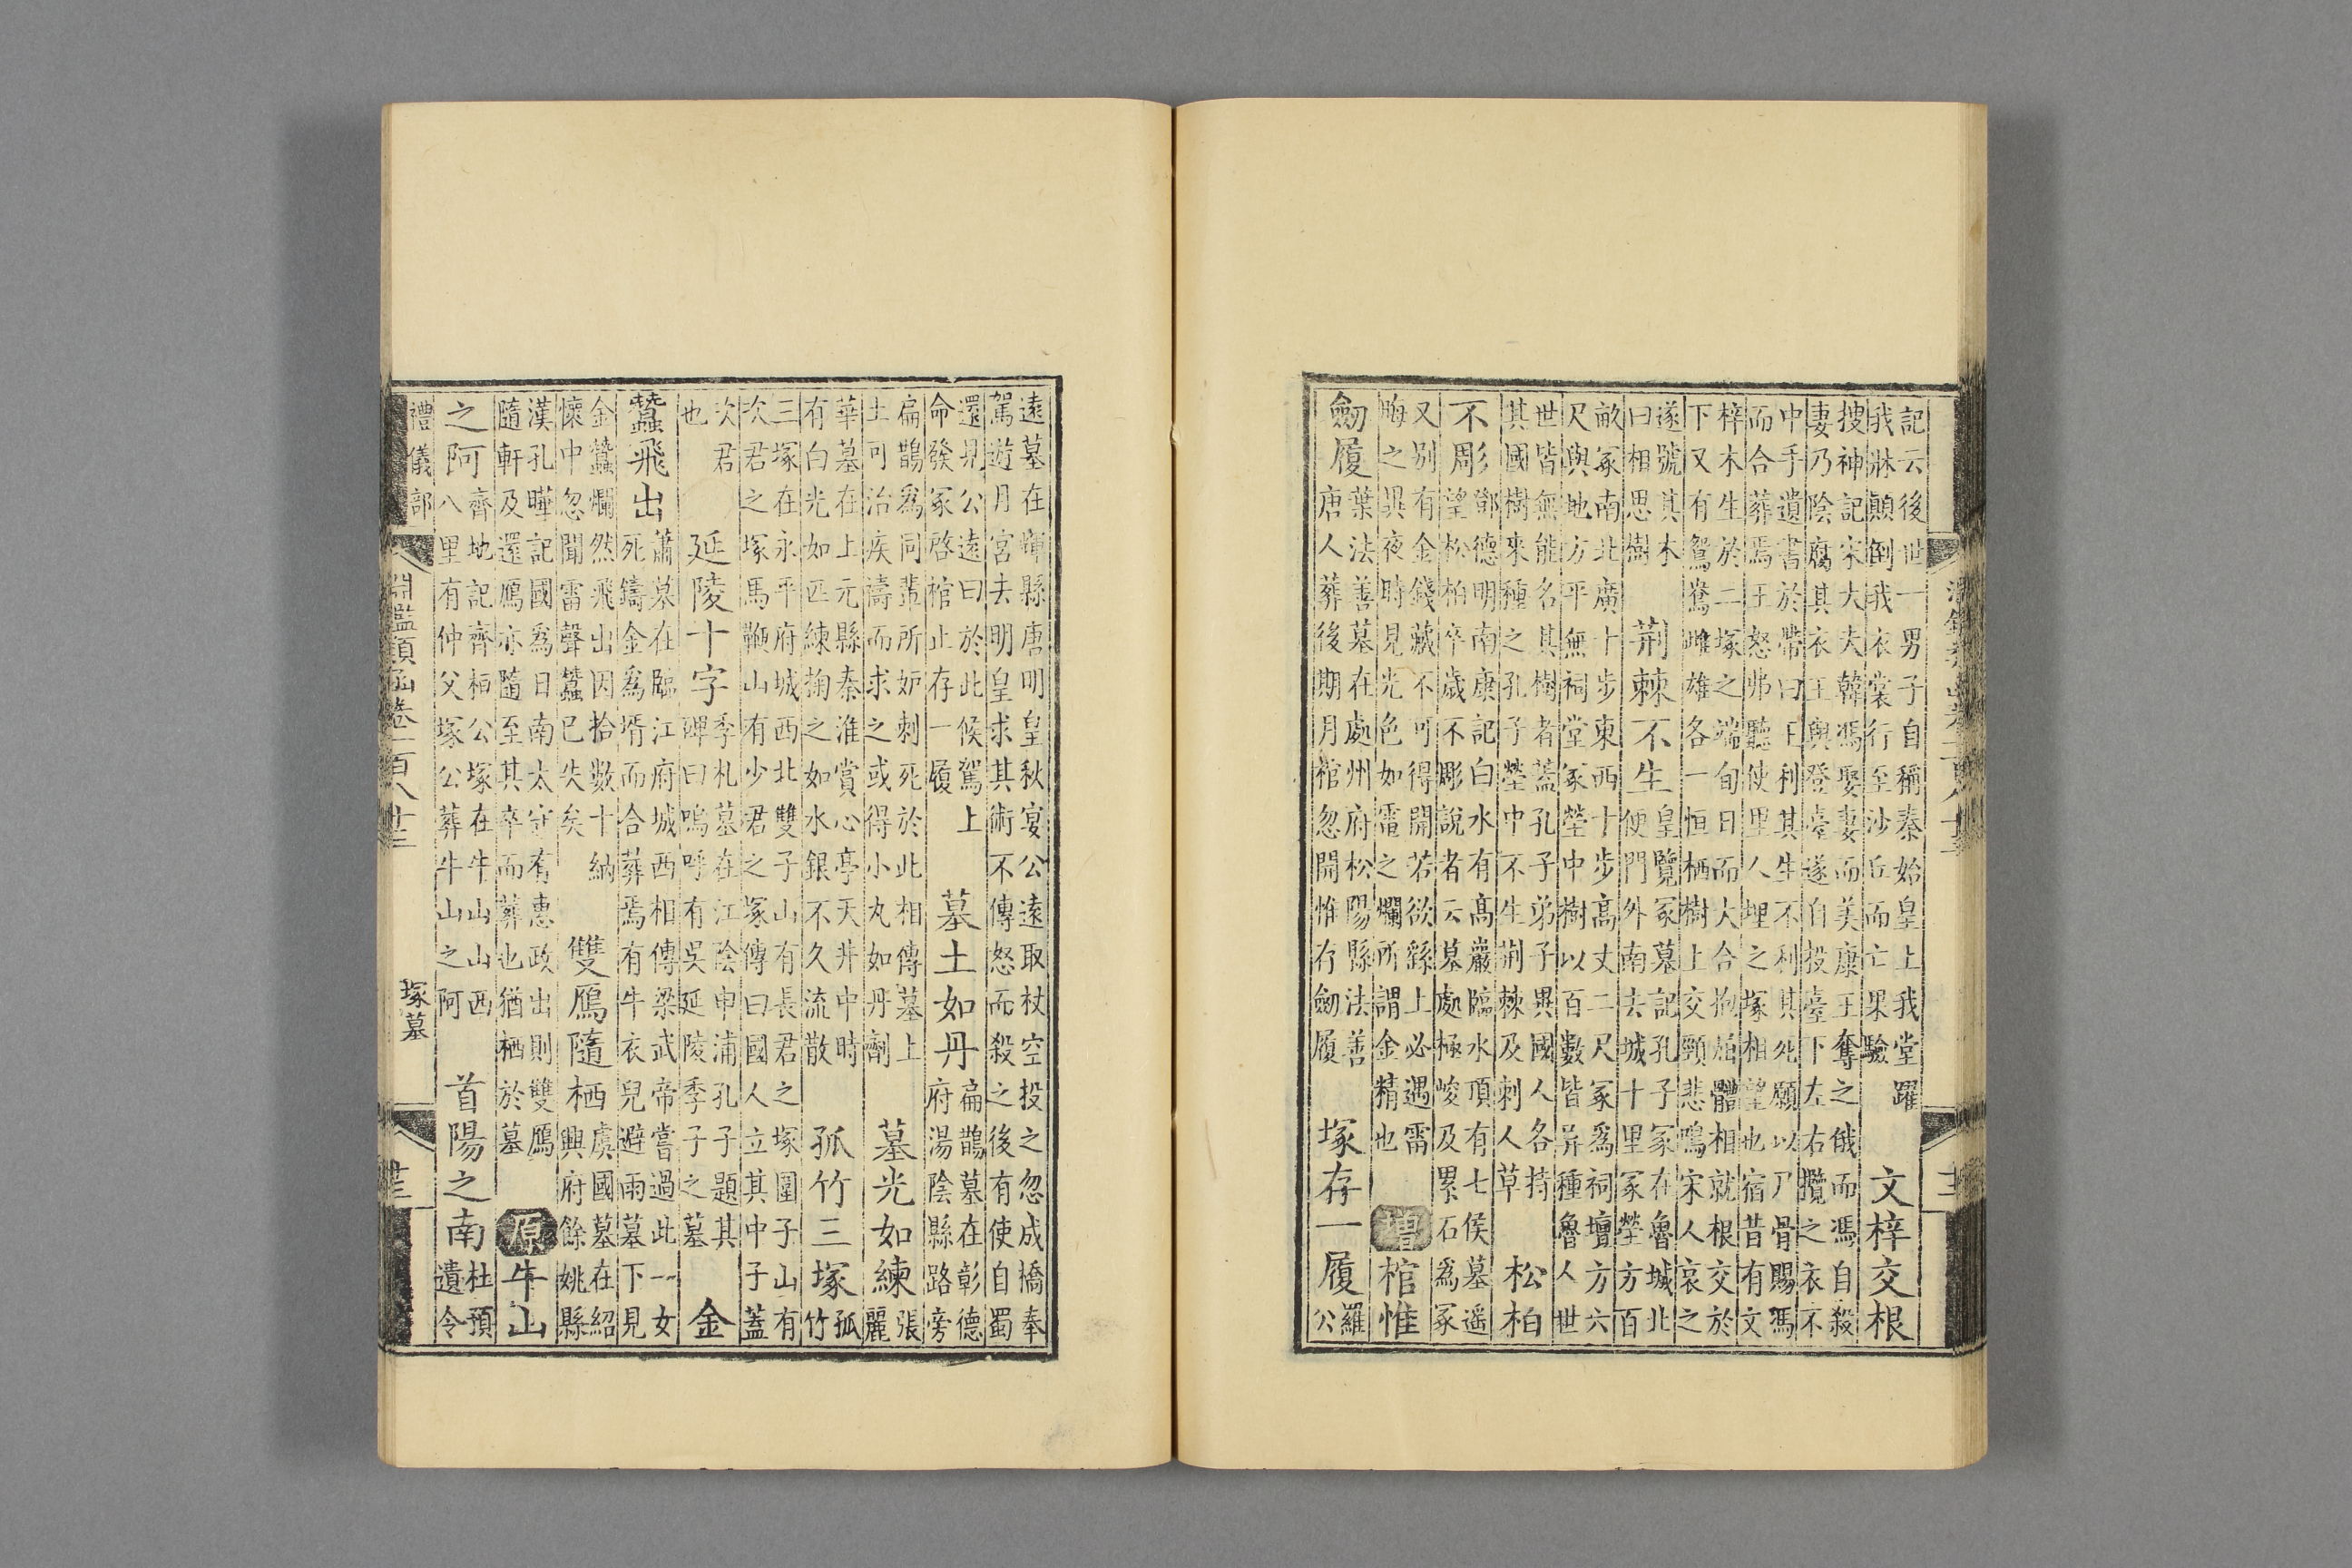 記云後世一男子自稱秦始皇上我堂躍
我牀顛倒我衣裳行至沙丘而亡果驗
文梓交根
搜神記宋大夫韓馮娶妻而美康王奪之俄而馮自殺
妻乃陰腐其衣王與登臺遂自投臺下左右攬之衣不
中手遺書於帶曰王利其生不利其死願以尸骨賜馮
而合葬焉王怒弗聽使里人埋之塚相望也宿昔有文
梓木生於二塚之端旬日而大合抱體相就根交於
下又有鴛鴦雌雄各一恒栖樹上交頸悲鳴宋人哀之
遂號其木
曰相思樹
荊棘不生
皇覽冢墓記孔子冢在魯城北
便門外南去城十里冢塋方百
畝冢南北廣十步東西十步高丈二尺冢爲祠壇方六
尺與地方平無祠堂冢塋中樹以百數皆異種魯人世
世皆無能名其樹者蓋孔子弟子異國人各持
其國樹來種之孔子塋中不生荊棘及刺人草
松柏
不彫
鄧德明南康記白水有高巖臨水頂有七侯墓遥
望松柏卒歲不彫說者云墓處極峻及累石爲冢
又別有金錢藏不可得開若欲繇上必遇雷
晦之與夜時見光色如電之爛所謂金精也
增
棺惟
劔履
葉法善墓在處州府松陽縣法善
唐人葬後期月棺忽開惟存劔履
塚存一履
羅
公
遠墓在輝縣唐明皇秋宴公遠取杖空投之忽成橋奉
駕遊月宮去明皇求其術不傳怒而殺之後有使自蜀
還見公遠曰於此候駕上
命發冢啓棺止存一履
墓土如丹
扁鵲墓在彰德
府湯陰縣路旁
扁鵲爲同輩所妒刺死於此相傳墓上
土可治疾禱而求之或得小丸如丹劑
墓光如練
張
麗
華墓在上元縣秦淮賞心亭天井中時
有白光如匹練掬之如水銀不久流散
孤竹三塚
孤
竹
三塚在永平府城西北雙子山有長君之塚團子山有
次君之塚馬鞭山有少君之塚傳曰國人立其中子蓋
次君
也
延陵十字
季札墓在江陰申浦孔子題其
碑曰嗚呼有吳延陵季子之墓
金
蠶飛出
蕭墓在臨江府城西相傳梁武帝嘗過此一女
死鑄金爲壻而合葬焉有牛衣兒避雨墓下見
金蠶爛然飛出因拾數十納
懷中忽聞雷聲蠶已失矣
雙鴈隨栖
虞國墓在紹
興府餘姚縣
漢孔曄記國爲日南太守有惠政出則雙鴈
隨軒及還鴈亦隨至其卒而葬也猶栖於墓
原
牛山
之阿
齊地記齊桓公塚在牛山西
八里有仲父塚公葬牛山之阿
首陽之南
杜預
遺令
禮儀部
淵鑑類函卷一百八十三
塚墓